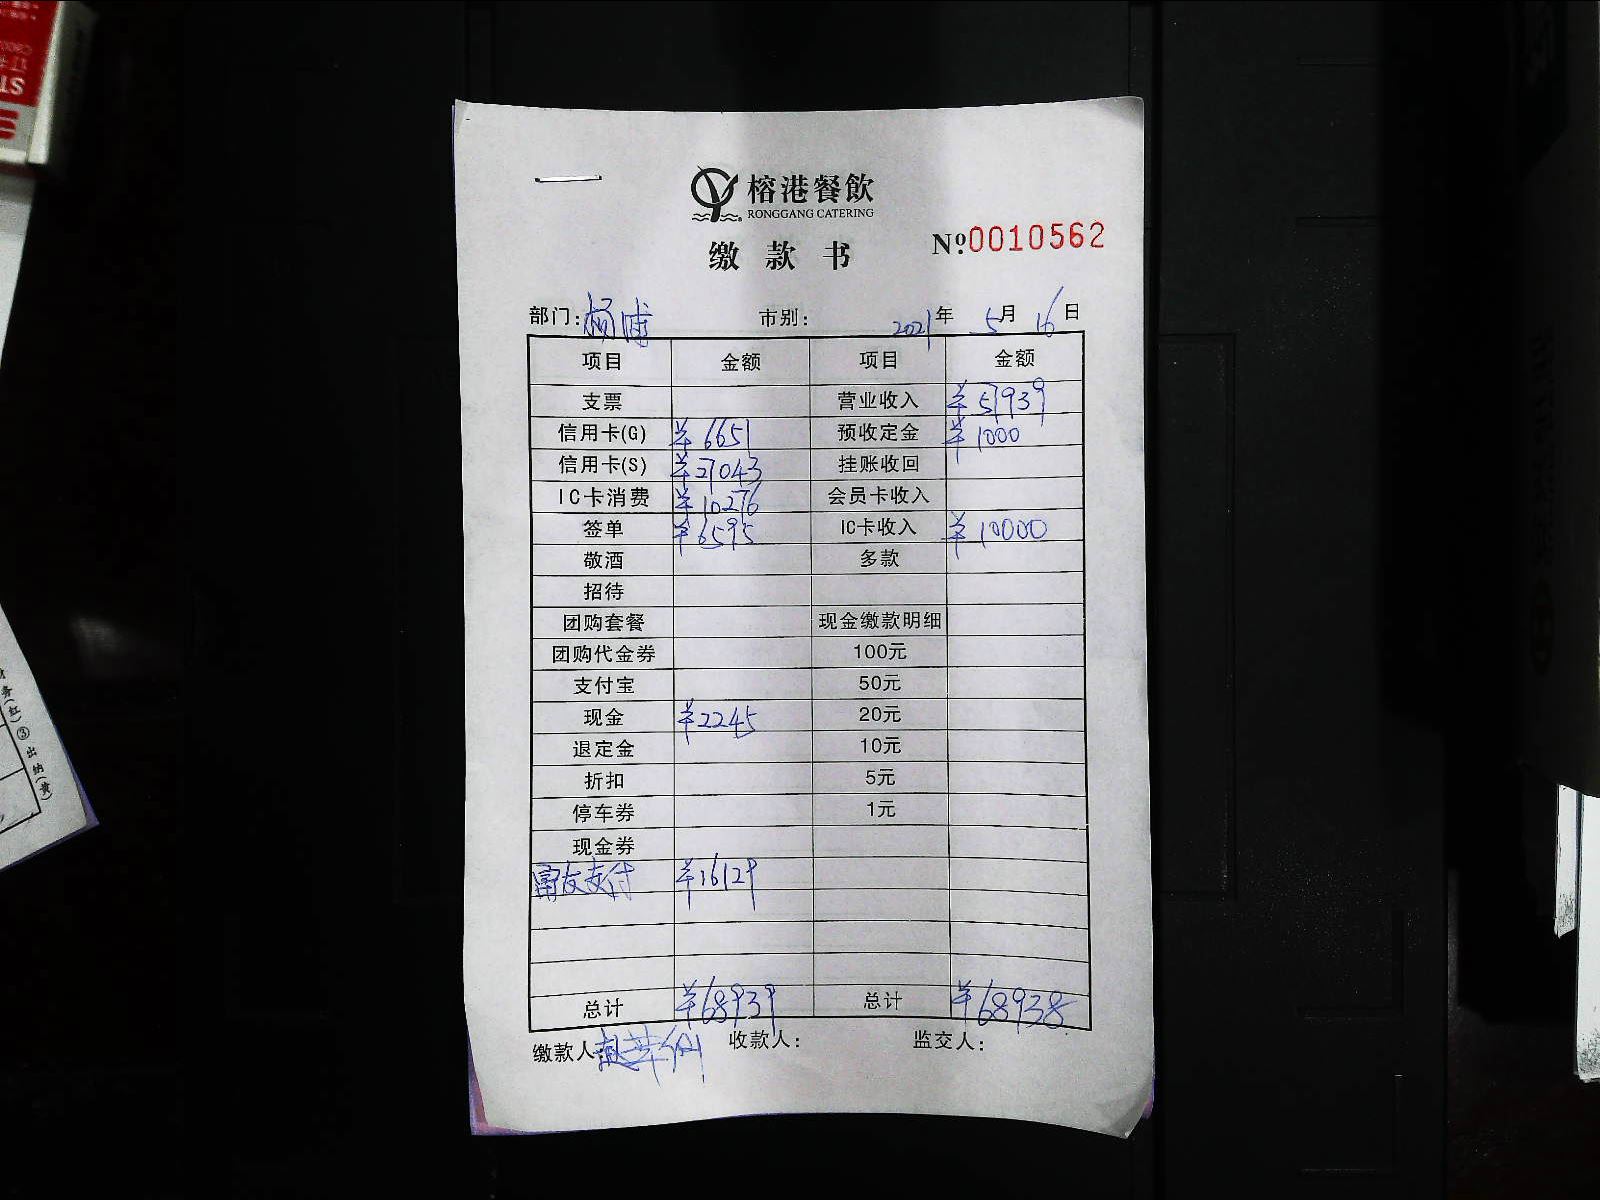 榕港餐飲
RONGGANG CATERING
缴款书
№0010562
部门：杨浦 市别： 2021年 5月 16日
项目 金额 项目 金额
支票 营业收入 ¥57939
信用卡(G) ¥6651 预收定金 ¥1000
信用卡(S) ¥27043 挂账收回
IC卡消费 ¥10276 会员卡收入
签单 ¥6595 IC卡收入 ¥10000
敬酒 多款
招待
团购套餐 现金缴款明细
团购代金券 100元
支付宝 50元
现金 ¥2245 20元
退定金 10元
折扣 5元
停车券 1元
现金券
富友支付 ¥16129
总计 ¥68939 总计 ¥68938
缴款人： 收款人： 监交人：
务(红)③出纳(黄)